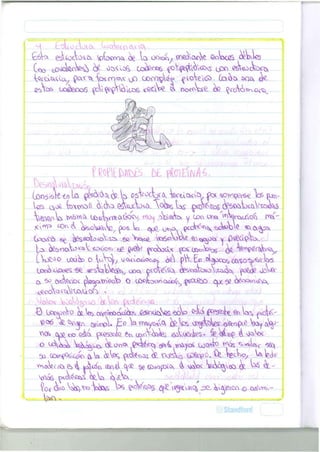 Estructura Cuaternaria.
Esta estructura informa de la unión, mediante enlaces débiles
(no covalentes) de varias cadenas polipeptídicas con estructura
terciaria, para formar un complejo proteico. Cada una de
estas cadenas polipeptídicas recibe el nombre de protómero.
PROPIEDADES DE PROTEÍNAS.
Desnaturalización
Consiste en la pérdida de la estructura terciaria, por romperse los puen-
tes que forman dicha estructura. Todas las proteínas desnaturalizadas
tienen la misma conformación, muy abierta y con una interacción má-
xima con el disolvente, por lo que una proteína soluble en agua
cuando se desnaturaliza se hace insoluble en agua y precipita.
La desnaturalización se puede producir por cambios de temperatura,
(huevo cocido o frito), variaciones del pH. En algunos casos si las
condiciones se restablecen, una proteína desnaturalizada puede volver
a su anterior plegamiento o conformación, proceso que se denomina
renaturalización.
Valor biológico de las proteínas
El conjunto de los aminoácidos esenciales sólo está presente en las proteí-
nas de origen animal. En la mayoría de los vegetales siempre hay algu-
nos que no está presente en cantidades adecuadas. Se el valor
o calidad biológica de una proteína será mayor cuanto más similar sea
su composición a la de las proteínas de nuestro cuerpo. De hecho, la leche
materna es el patrón con el que se compara el valor biológico de las de-
más proteínas de la dieta.
Por otro lado, no todas las proteínas que ingerimos se digieren o asimi-
lan.
Standford